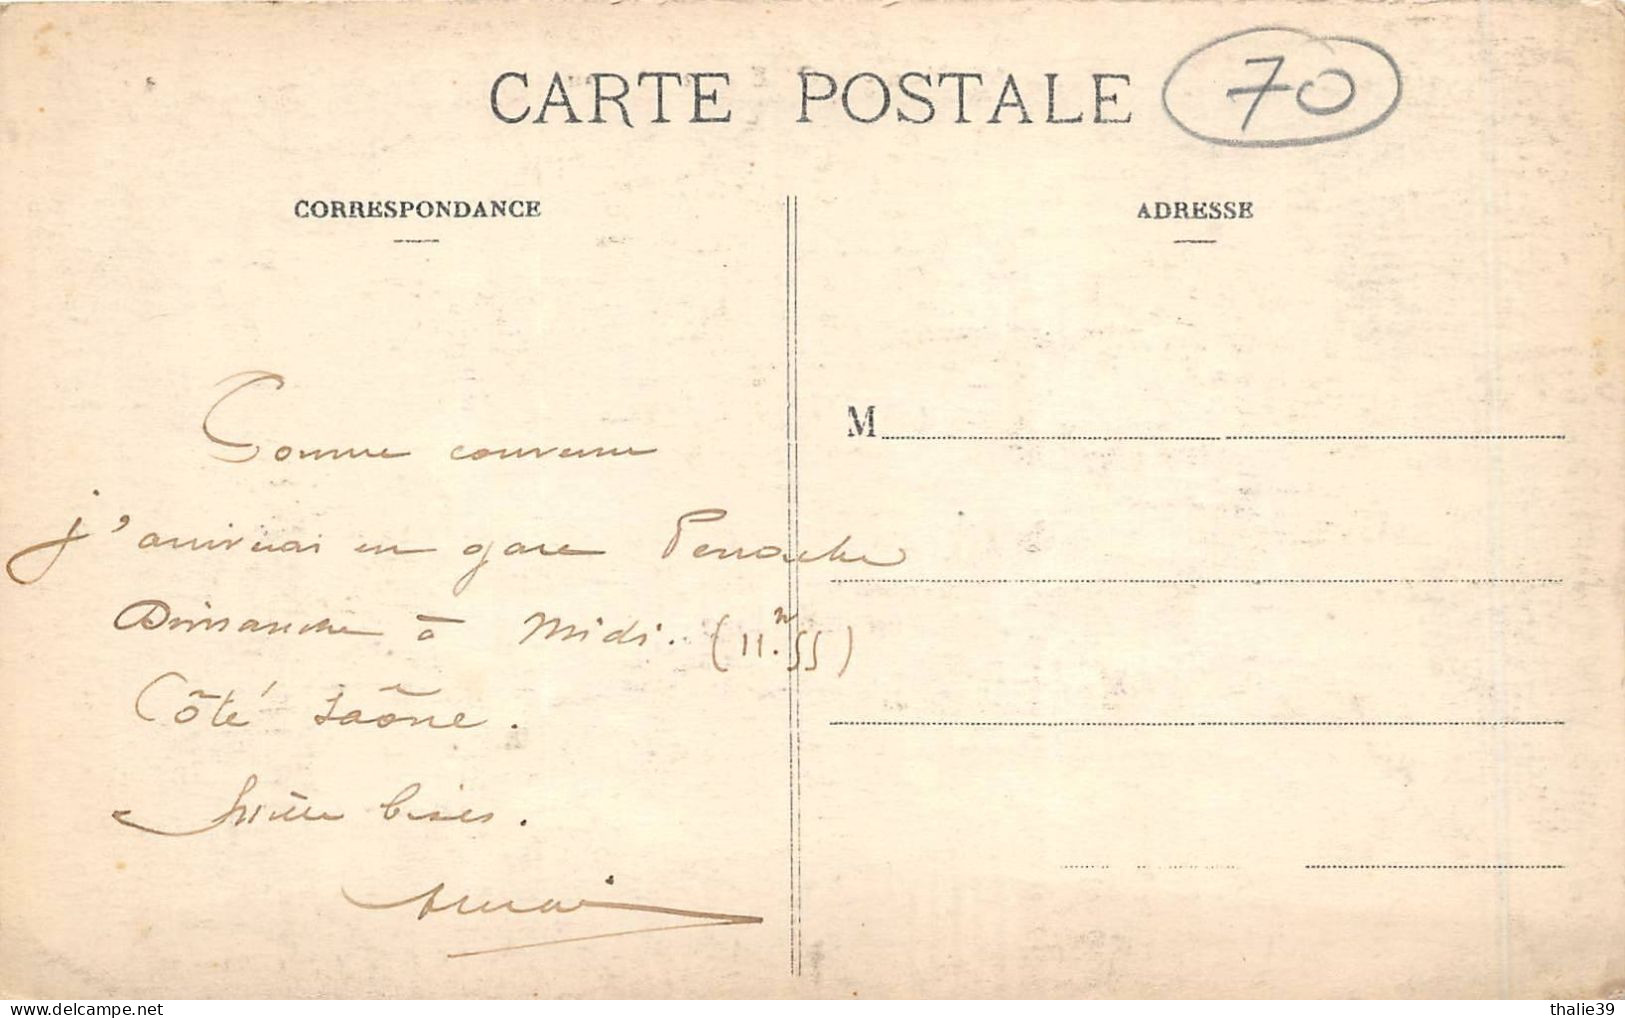 CARTE POSTALE
70
CORRESPONDANCE
ADRESSE
M
Comme convenu
j'arriverai en gare Perrache
Dimanche à Midi. (11h.55)
Côté Saône.
Mille bises.
thalie39